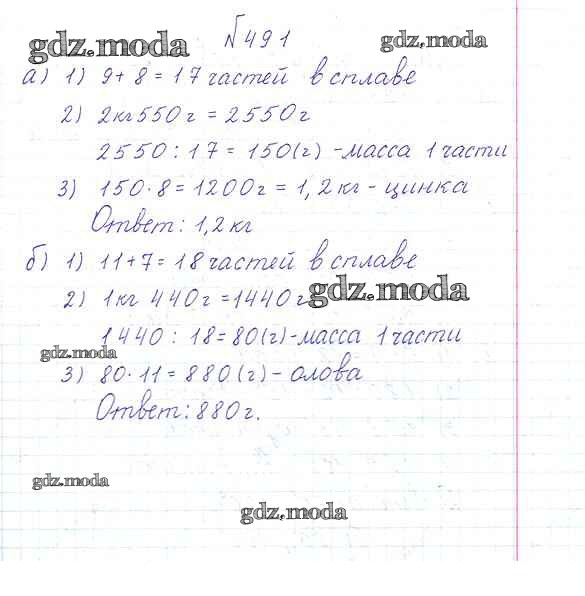 №491
gdz.moda
gdz.moda
а) 1) 9+8=17 частей в сплаве
2) 2кг550г = 2550г
2550:17=150(г) -масса 1 части
3) 150·8=1200г=1,2кг- цинка
Ответ: 1,2кг
б) 1) 11+7=18 частей в сплаве
2) 1кг 440г=1440г
gdz.moda
1440 : 18=80(г)-масса 1 части
gdz.moda
3) 80·11=880(г)- олова
Ответ: 880г.
gdz.moda
gdz.moda